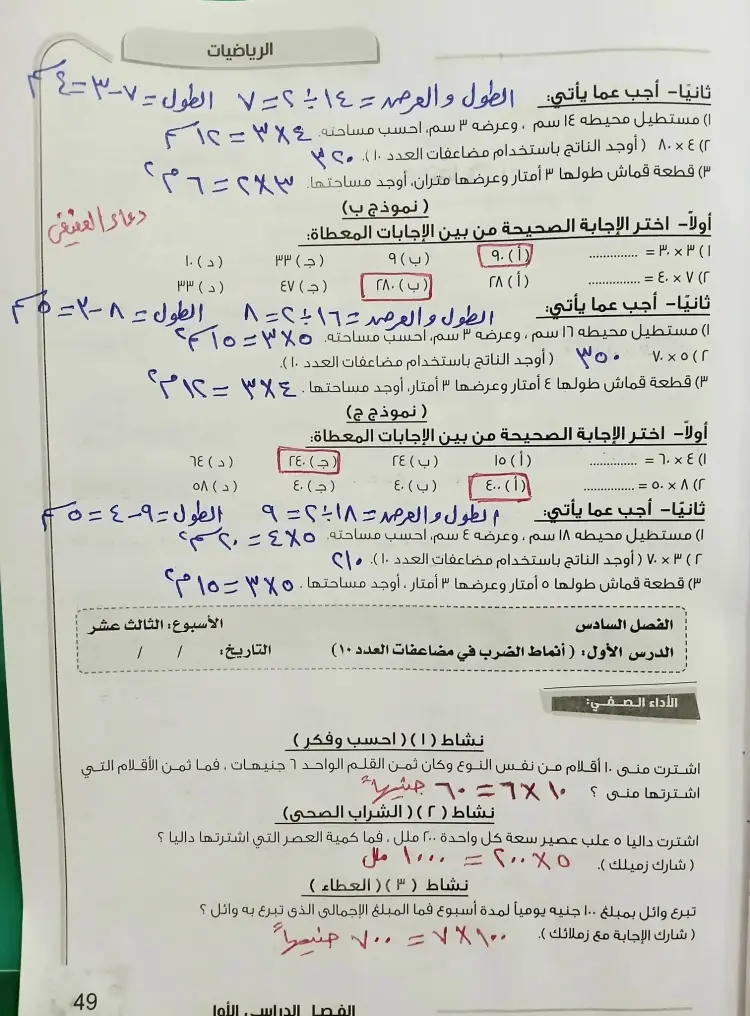 الرياضيات
ثانيًا- أجب عما يأتي: الطول والعرض = ١٤ ÷ ٢ = ٧ الطول = ٧ - ٣ = ٤ سم
١) مستطيل محيطه ١٤ سم ، وعرضه ٣ سم، احسب مساحته. ٤ × ٣ = ١٢ سم٢
٢) ٤ × ٨٠ ( أوجد الناتج باستخدام مضاعفات العدد ١٠). ٣٢٠
٣) قطعة قماش طولها ٣ أمتار وعرضها متران، أوجد مساحتها. ٣ × ٢ = ٦ م٢
( نموذج ب)
دعاء العفيفي
أولاً- اختر الإجابة الصحيحة من بين الإجابات المعطاة:
١) ٣ × ٣٠ = .............. (أ) ٩٠ (ب) ٩ (جـ) ٣٣ (د) ١٠
٢) ٧ × ٤٠ = .............. (أ) ٢٨ (ب) ٢٨٠ (جـ) ٤٧ (د) ٣٣
ثانيًا- أجب عما يأتي: الطول والعرض = ١٦ ÷ ٢ = ٨ الطول = ٨ - ٣ = ٥ سم
١) مستطيل محيطه ١٦ سم ، وعرضه ٣ سم، احسب مساحته. ٥ × ٣ = ١٥ سم٢
٢) ٥ × ٧٠ ٣٥٠ ( أوجد الناتج باستخدام مضاعفات العدد ١٠).
٣) قطعة قماش طولها ٤ أمتار وعرضها ٣ أمتار، أوجد مساحتها . ٤ × ٣ = ١٢ م٢
( نموذج ج)
أولاً- اختر الإجابة الصحيحة من بين الإجابات المعطاة:
١) ٤ × ٦٠ = .............. (أ) ١٥ (ب) ٢٤ (جـ) ٢٤٠ (د) ٦٤
٢) ٨ × ٥٠ = .............. (أ) ٤٠٠ (ب) ٤٠ (جـ) ٤٠ (د) ٥٨
ثانيًا- أجب عما يأتي: الطول والعرض = ١٨ ÷ ٢ = ٩ الطول = ٩ - ٤ = ٥ سم
١) مستطيل محيطه ١٨ سم ، وعرضه ٤ سم، احسب مساحته. ٥ × ٤ = ٢٠ سم٢
٢) ٣ × ٧٠ ( أوجد الناتج باستخدام مضاعفات العدد ١٠). ٢١٠
٣) قطعة قماش طولها ٥ أمتار وعرضها ٣ أمتار ، أوجد مساحتها . ٥ × ٣ = ١٥ م٢
الفصل السادس الأسبوع: الثالث عشر
الدرس الأول: ( أنماط الضرب في مضاعفات العدد ١٠) التاريخ: / /
الأداء الصفي:
نشاط (١) ( احسب وفكر )
اشترت منى ١٠ أقلام من نفس النوع وكان ثمن القلم الواحد ٦ جنيهات ، فما ثمن الأقلام التي
اشترتها منى ؟ ١٠ × ٦ = ٦٠ جنيهاً
نشاط (٢) ( الشراب الصحى)
اشترت داليا ٥ علب عصير سعة كل واحدة ٢٠٠ ملل ، فما كمية العصر التي اشترتها داليا ؟
( شارك زميلك ). ٥ × ٢٠٠ = ١٠٠٠ ملل
نشاط (٣) ( العطاء )
تبرع وائل بمبلغ ١٠٠ جنيه يومياً لمدة أسبوع فما المبلغ الإجمالى الذى تبرع به وائل ؟
( شارك الإجابة مع زملائك ). ١٠٠ × ٧ = ٧٠٠ جنيهاً
49
الفصل الدراسي الأول